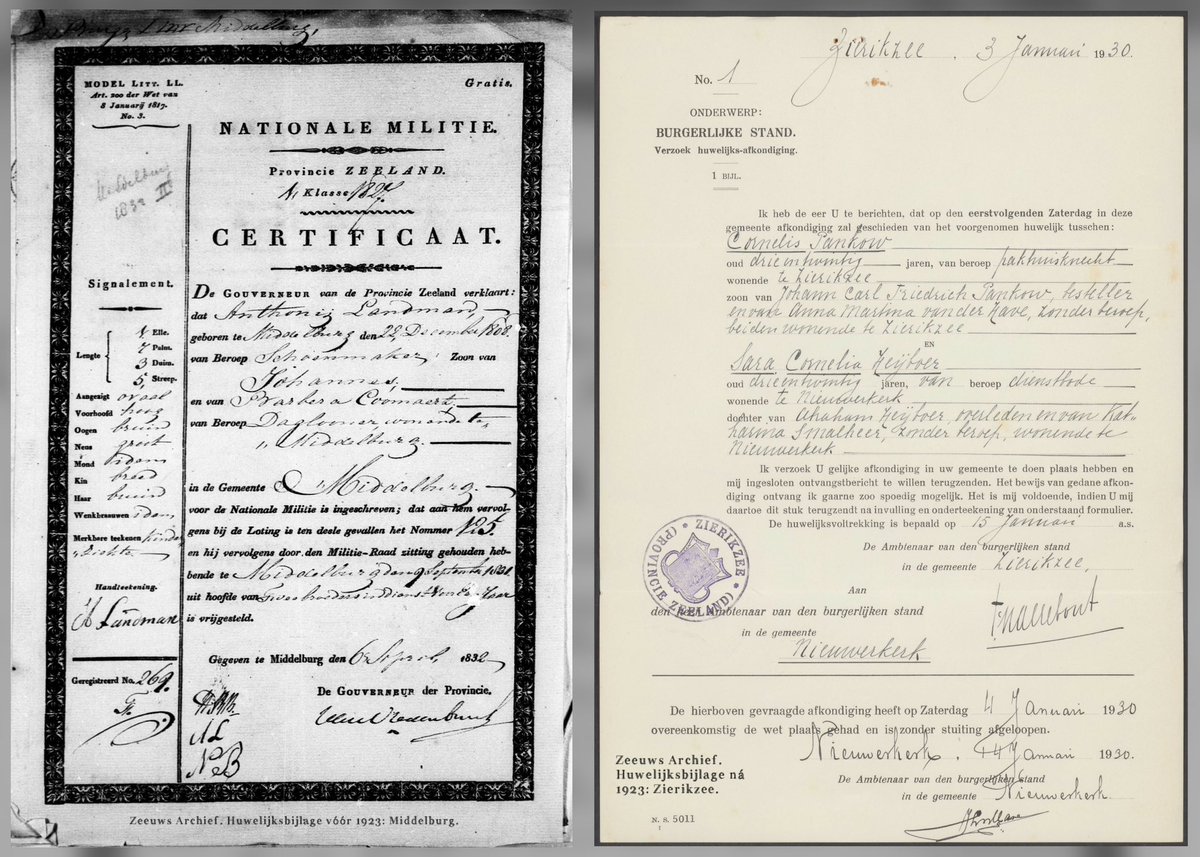 MODEL LITT. LL.
Art. 200 der Wet van
8 Januarij 1817.
No. 3.
Gratis.
NATIONALE MILITIE.
Provincie ZEELAND.
Klasse 1827.
CERTIFICAAT.
Middelburg
1832 II
Signalement.
Lengte
1 Elle.
7 Palm.
3 Duim.
5 Streep.
Aangezigt ovaal
Voorhoofd hoog
Oogen bruin
Neus groot
Mond idem
Kin breed
Haar bruin
Wenkbraauwen idem
Merkbare teekenen
Handteekening.
A Landman
Geregistreerd No. 269.
DE GOUVERNEUR van de Provincie Zeeland verklaart:
dat Anthonij Landman
geboren te Middelburg den 22 December 1808
van Beroep Schoenmaker, Zoon van
Johannes,
en van Barbera Coomaert
van Beroep Daglooner wonende te
Middelburg.
in de Gemeente Middelburg
voor de Nationale Militie is ingeschreven; dat aan hem vervol-
gens bij de Loting is ten deele gevallen het Nommer 125.
en hij vervolgens door den Militie-Raad zitting gehouden heb-
bende te Middelburg den 9 September 1831
uit hoofde van
is vrijgesteld.
Gegeven te Middelburg den 6 April 1832
De GOUVERNEUR der Provincie.
Zeeuws Archief. Huwelijksbijlage vóór 1923: Middelburg.
Zierikzee, 3 Januari 1930.
No. 1
ONDERWERP:
BURGERLIJKE STAND.
Verzoek huwelijks-afkondiging.
1 BIJL.
Ik heb de eer U te berichten, dat op den eerstvolgenden Zaterdag in deze
gemeente afkondiging zal geschieden van het voorgenomen huwelijk tusschen:
Cornelis Pankow
oud drieentwintig jaren, van beroep pakhuisknecht
wonende te Zierikzee
zoon van Johann Carl Friedrich Pankow, besteller
en van Anna Martina van der Have, zonder beroep,
beiden wonende te Zierikzee
EN
Sara Cornelia Heijboer
oud drieentwintig jaren, van beroep dienstbode
wonende te Nieuwerkerk
dochter van Abraham Heijboer, overleden en van Kat-
harina Smalheer, zonder beroep, wonende te
Nieuwerkerk
Ik verzoek U gelijke afkondiging in uw gemeente te doen plaats hebben en
mij ingesloten ontvangstbericht te willen terugzenden. Het bewijs van gedane afkon-
diging ontvang ik gaarne zoo spoedig mogelijk. Het is mij voldoende, indien U mij
daartoe dit stuk terugzendt na invulling en onderteekening van onderstaand formulier.
De huwelijksvoltrekking is bepaald op 15 Januari a.s.
De Ambtenaar van den burgerlijken stand
in de gemeente Zierikzee,
ZIERIKZEE (PROVINCIE ZEELAND)
Aan
den heer Ambtenaar van den burgerlijken stand
in de gemeente
Nieuwerkerk
De hierboven gevraagde afkondiging heeft op Zaterdag 4 Januari 1930
overeenkomstig de wet plaats gehad en is zonder stuiting afgeloopen.
Nieuwerkerk, 14 Januari 1930.
De Ambtenaar van den burgerlijken stand
in de gemeente Nieuwerkerk.
Zeeuws Archief.
Huwelijksbijlage ná
1923: Zierikzee.
N. S. 5011
1